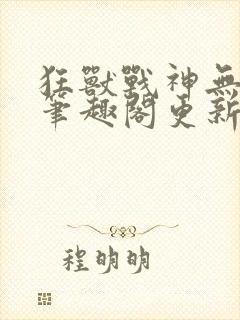 狂獸戰神無
筆趣閣更新
程明明